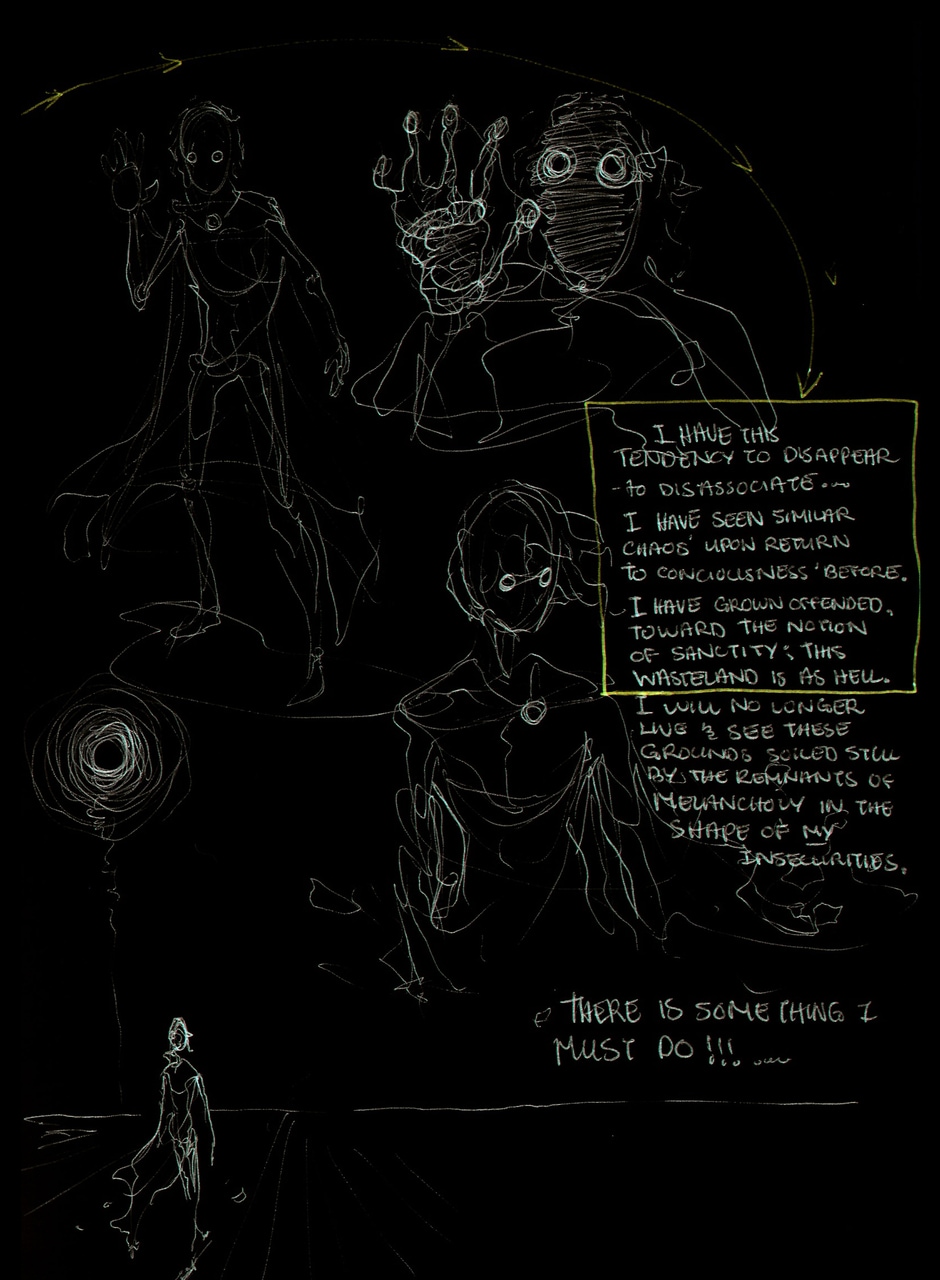 I HAVE THIS
TENDENCY TO DISAPPEAR
- TO DISASSOCIATE...
I HAVE SEEN SIMILAR
CHAOS' UPON RETURN
TO CONCIOUSNESS' BEFORE.
I HAVE GROWN OFFENDED,
TOWARD THE NOTION
OF SANCTITY; THIS
WASTELAND IS AS HELL.
I WILL NO LONGER
LIVE & SEE THESE
GROUNDS SOILED STILL
BY THE REMNANTS OF
MELANCHOLY IN THE
SHAPE OF MY
INSECURITIES.
THERE IS SOMETHING I
MUST DO!!! ...